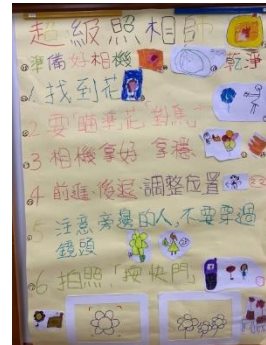 超級照相師
準備好相機 乾淨
1. 找到花
2 要「瞄準花」對焦
3 相機拿好 拿穩
4 前進、後退、調整位置
5 注意旁邊的人,不要穿過
鏡頭
6 拍照「按快門」